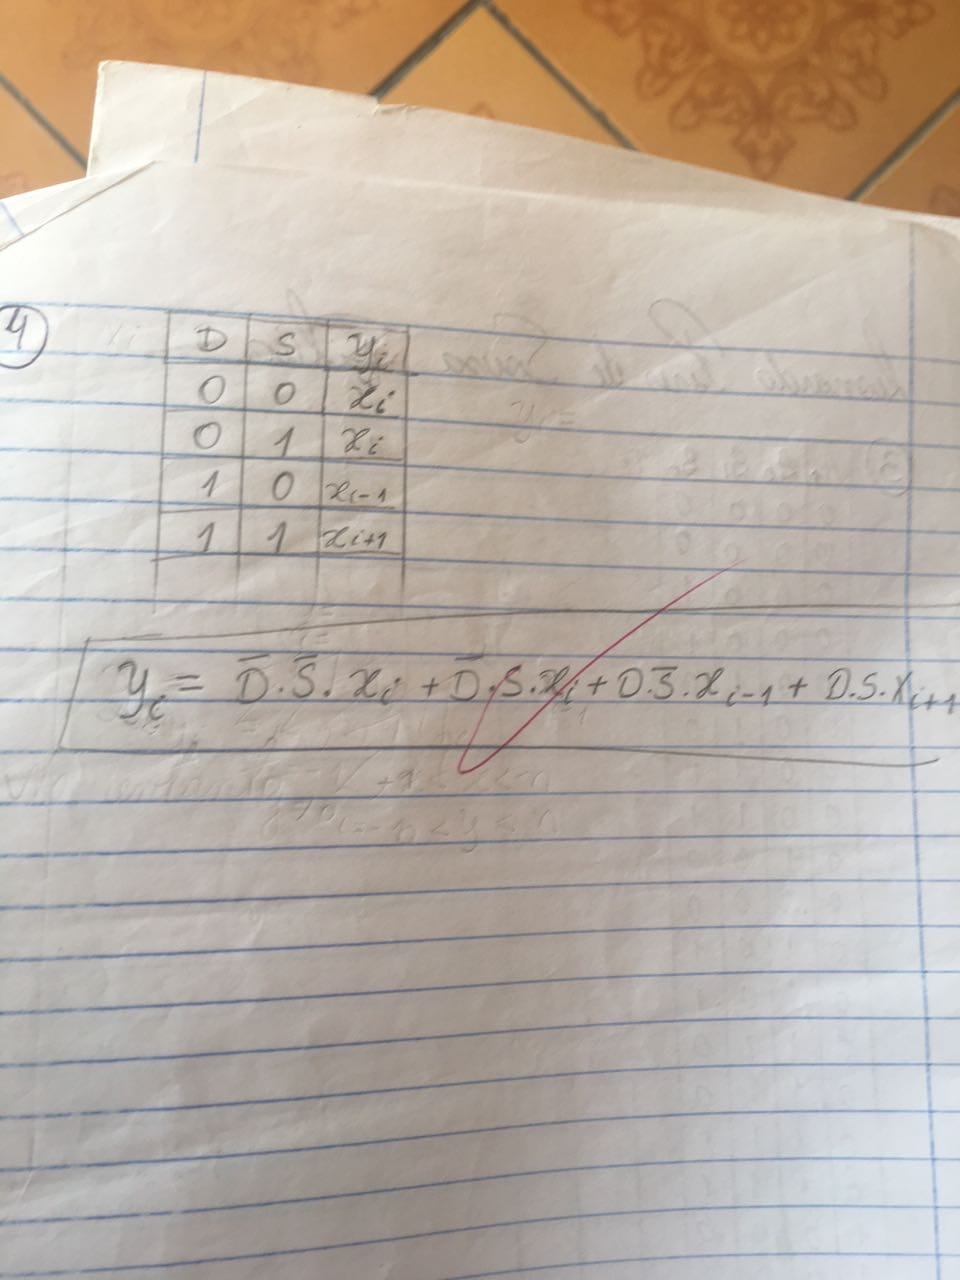 4
D S yi
0 0 xi
0 1 xi
1 0 xi-1
1 1 xi+1
yi = D̅.S̅.xi + D̅.S.xi + D.S̅.xi-1 + D.S.xi+1